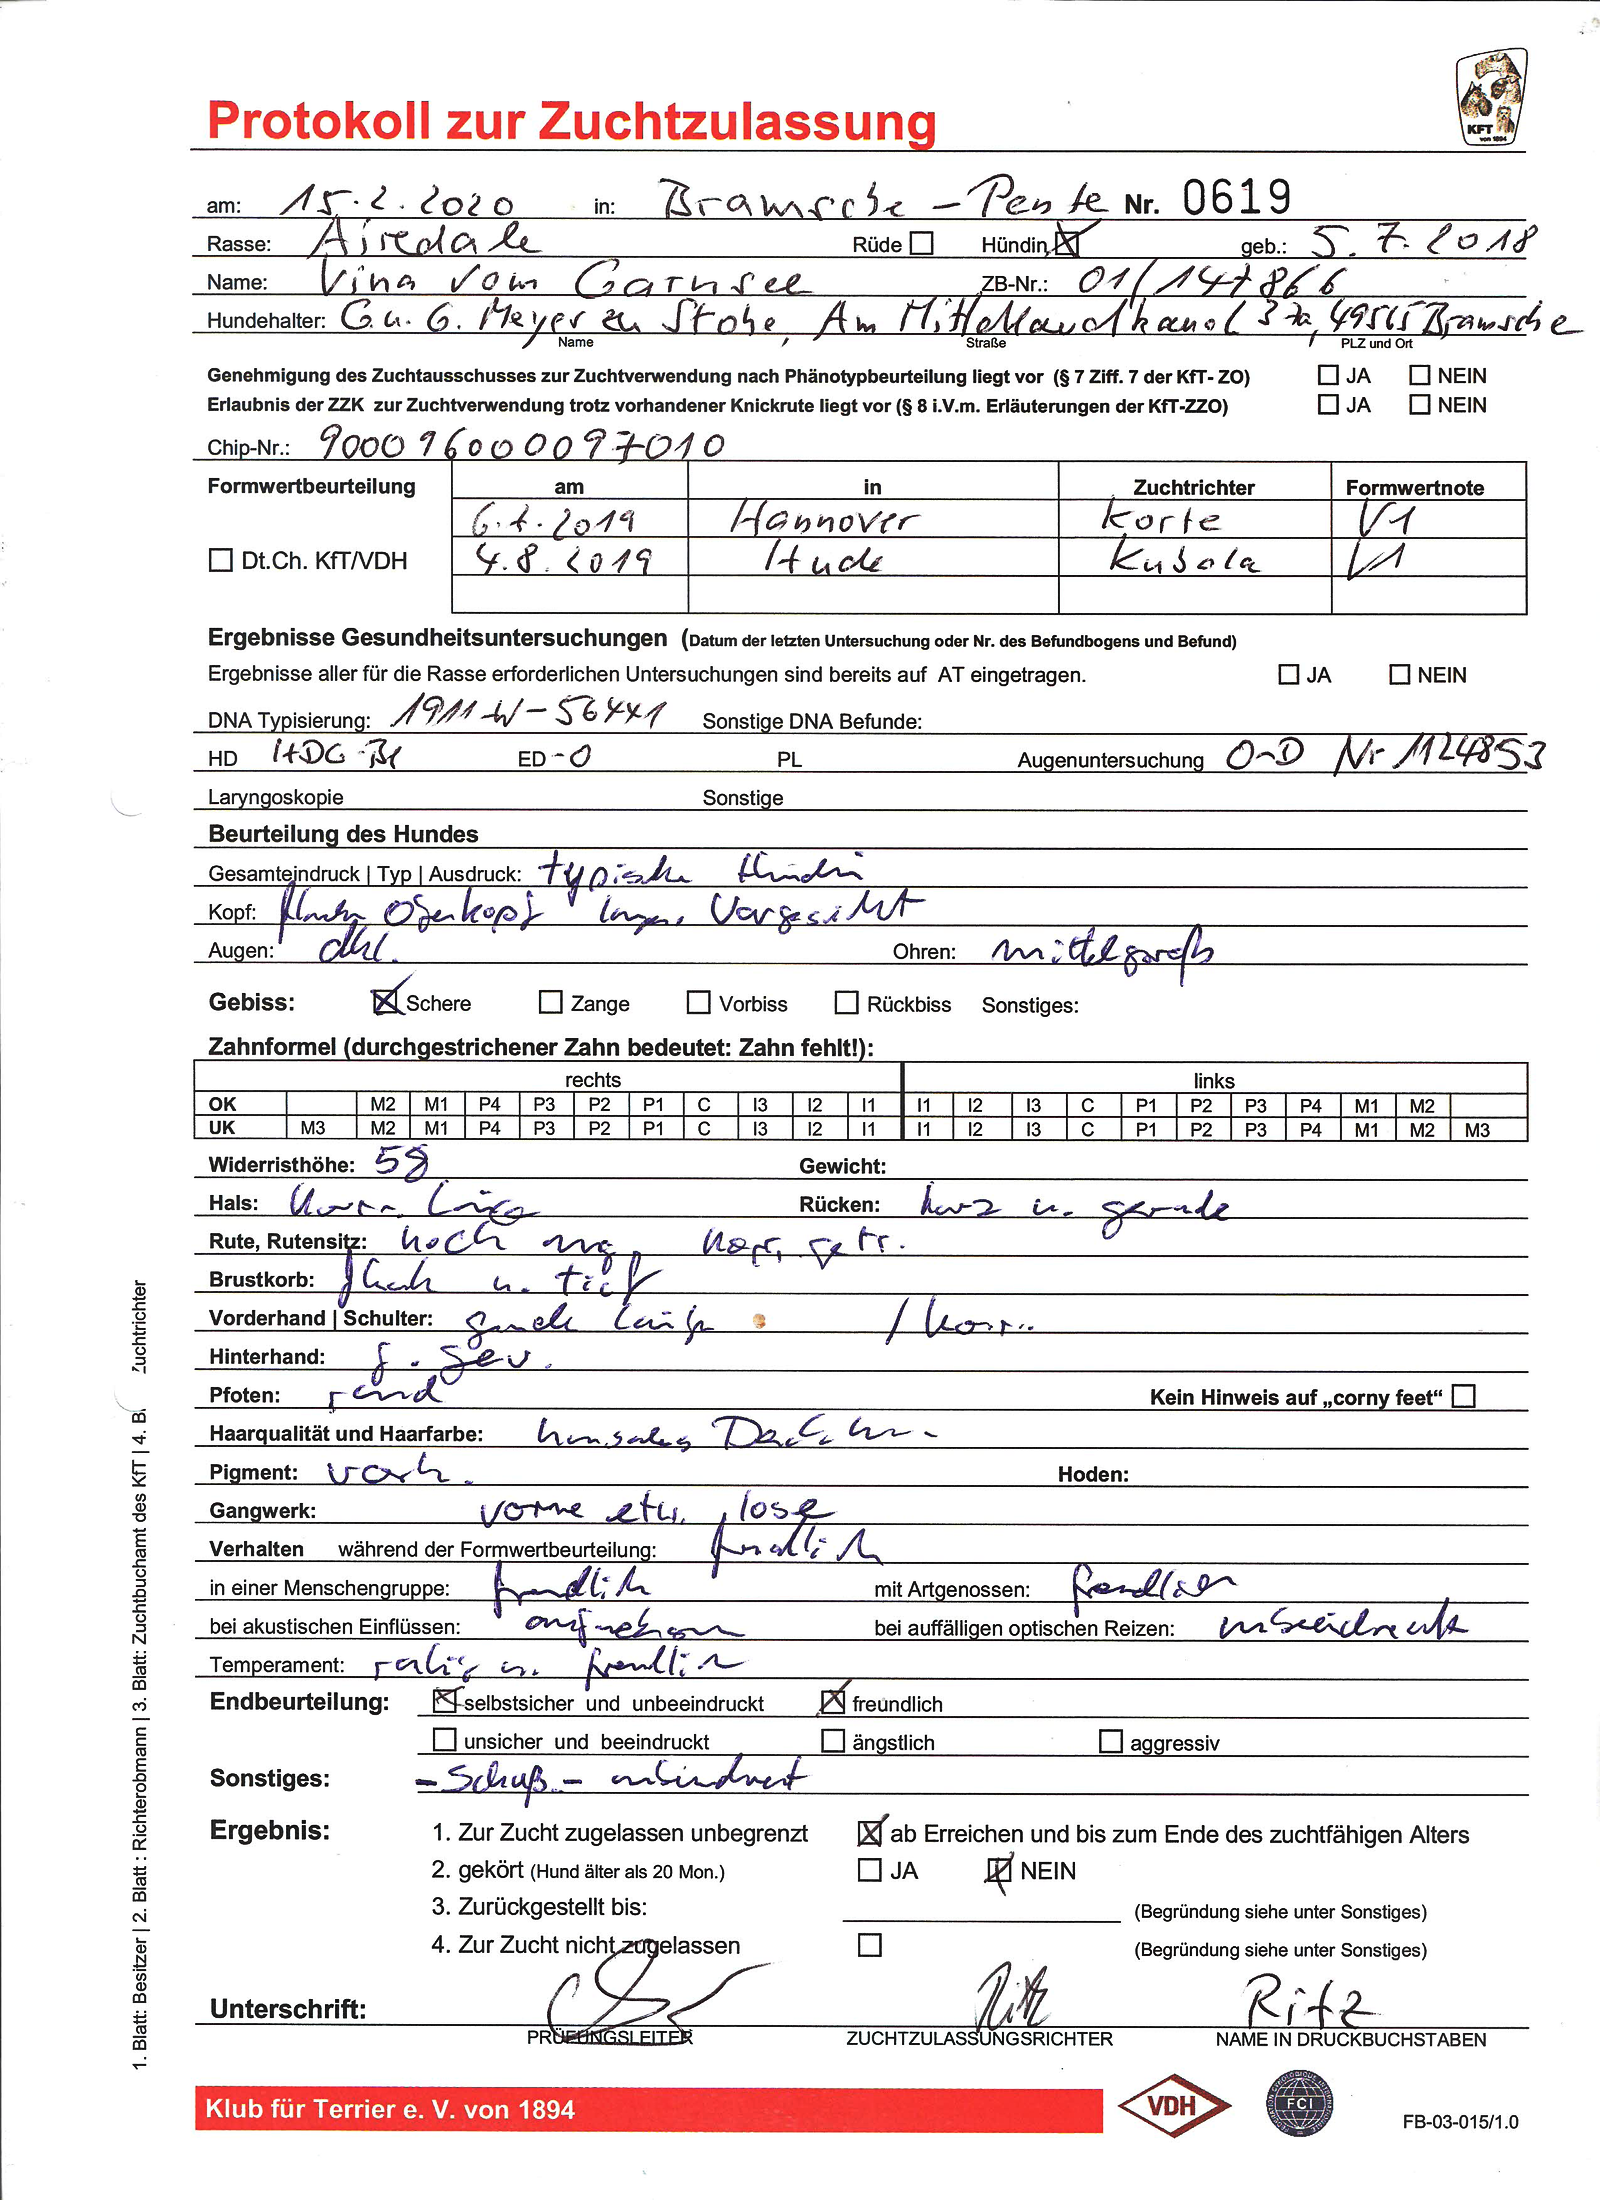 Protokoll zur Zuchtzulassung
KFT
von 1894
am: 15.2.2020 in: Bramsche - Pente Nr. 0619
Rasse: Airedale Rüde ☐ Hündin ☒ geb.: 5.7.2018
Name: Vina vom Garnsee ZB-Nr.: 01/147866
Hundehalter: G. u. G. Meyer zu Stohe, Am Mittellandkanal 37a, 49565 Bramsche
Name Straße PLZ und Ort
Genehmigung des Zuchtausschusses zur Zuchtverwendung nach Phänotypbeurteilung liegt vor (§ 7 Ziff. 7 der KfT- ZO) ☐ JA ☐ NEIN
Erlaubnis der ZZK zur Zuchtverwendung trotz vorhandener Knickrute liegt vor (§ 8 i.V.m. Erläuterungen der KfT-ZZO) ☐ JA ☐ NEIN
Chip-Nr.: 900096000097010
Formwertbeurteilung am in Zuchtrichter Formwertnote
6.7.2019 Hannover Korte V1
☐ Dt.Ch. KfT/VDH 4.8.2019 Hude Kubola V1
Ergebnisse Gesundheitsuntersuchungen (Datum der letzten Untersuchung oder Nr. des Befundbogens und Befund)
Ergebnisse aller für die Rasse erforderlichen Untersuchungen sind bereits auf AT eingetragen. ☐ JA ☐ NEIN
DNA Typisierung: 1911-W-56441 Sonstige DNA Befunde:
HD HDG-B1 ED -0 PL Augenuntersuchung O-D Nr 1124853
Laryngoskopie Sonstige
Beurteilung des Hundes
Gesamteindruck | Typ | Ausdruck: typische Hündin
Kopf: flacher Oberkopf langes Vorgesicht
Augen: dkl. Ohren: mittelgroß
Gebiss: ☒ Schere ☐ Zange ☐ Vorbiss ☐ Rückbiss Sonstiges:
Zahnformel (durchgestrichener Zahn bedeutet: Zahn fehlt!):
rechts links
OK M2 M1 P4 P3 P2 P1 C I3 I2 I1 I1 I2 I3 C P1 P2 P3 P4 M1 M2
UK M3 M2 M1 P4 P3 P2 P1 C I3 I2 I1 I1 I2 I3 C P1 P2 P3 P4 M1 M2 M3
Widerristhöhe: 58 Gewicht:
Hals: korr. Länge Rücken: kurz u. gerade
Rute, Rutensitz: hoch ang. korr. getr.
Brustkorb: u. tief
Vorderhand | Schulter: gerade Läufe / korr.
Hinterhand: g. gew.
Pfoten: rund Kein Hinweis auf „corny feet“ ☐
Haarqualität und Haarfarbe:
Pigment: vorh. Hoden:
Gangwerk: vorne etw. lose
Verhalten während der Formwertbeurteilung: freundlich
in einer Menschengruppe: freundlich mit Artgenossen: freundlich
bei akustischen Einflüssen: bei auffälligen optischen Reizen: unbeeindruckt
Temperament: ruhig u. freundlich
Endbeurteilung: ☒ selbstsicher und unbeeindruckt ☒ freundlich
☐ unsicher und beeindruckt ☐ ängstlich ☐ aggressiv
Sonstiges: - Schuß -
Ergebnis: 1. Zur Zucht zugelassen unbegrenzt ☒ ab Erreichen und bis zum Ende des zuchtfähigen Alters
2. gekört (Hund älter als 20 Mon.) ☐ JA ☒ NEIN
3. Zurückgestellt bis: (Begründung siehe unter Sonstiges)
4. Zur Zucht nicht zugelassen ☐ (Begründung siehe unter Sonstiges)
Unterschrift: Ritz Ritz
PRÜFUNGSLEITER ZUCHTZULASSUNGSRICHTER NAME IN DRUCKBUCHSTABEN
Klub für Terrier e. V. von 1894
VDH
FCI
FB-03-015/1.0
1. Blatt: Besitzer | 2. Blatt : Richterobmann | 3. Blatt: Zuchtbuchamt des KfT | 4. B. Zuchtrichter